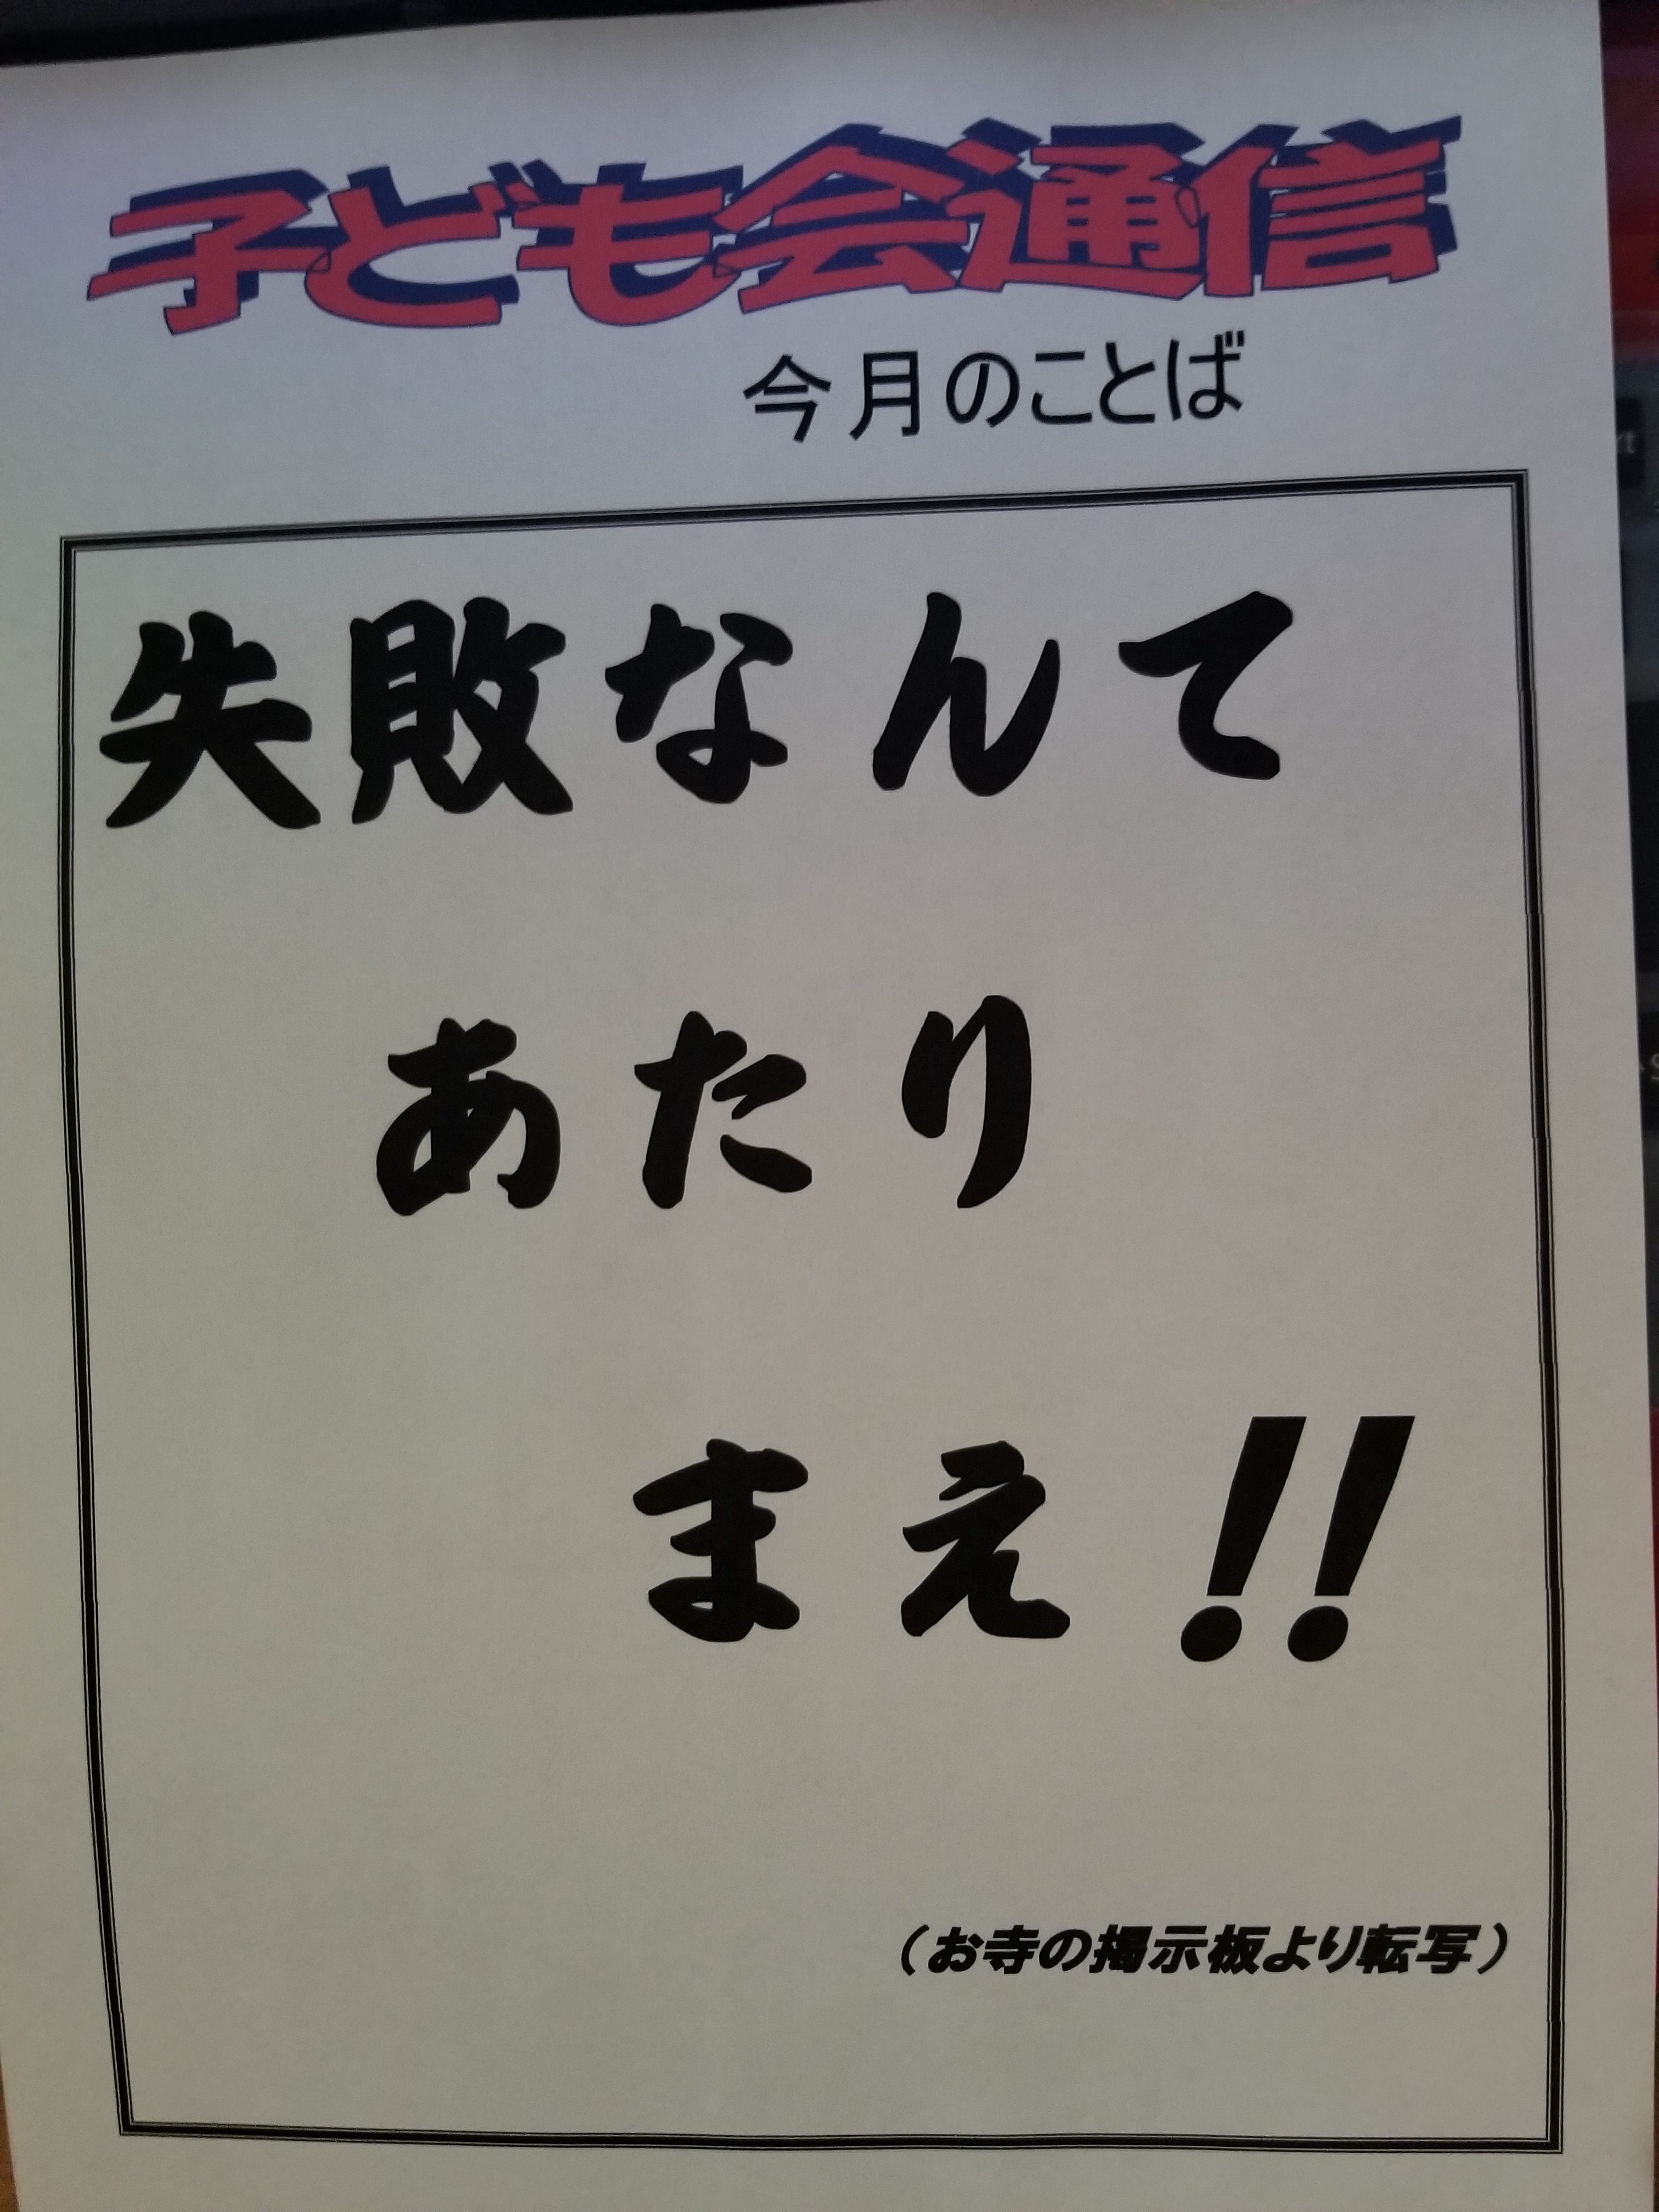 子ども会通信
今月のことば
失敗なんて
あたり
まえ!!
（お寺の掲示板より転写）